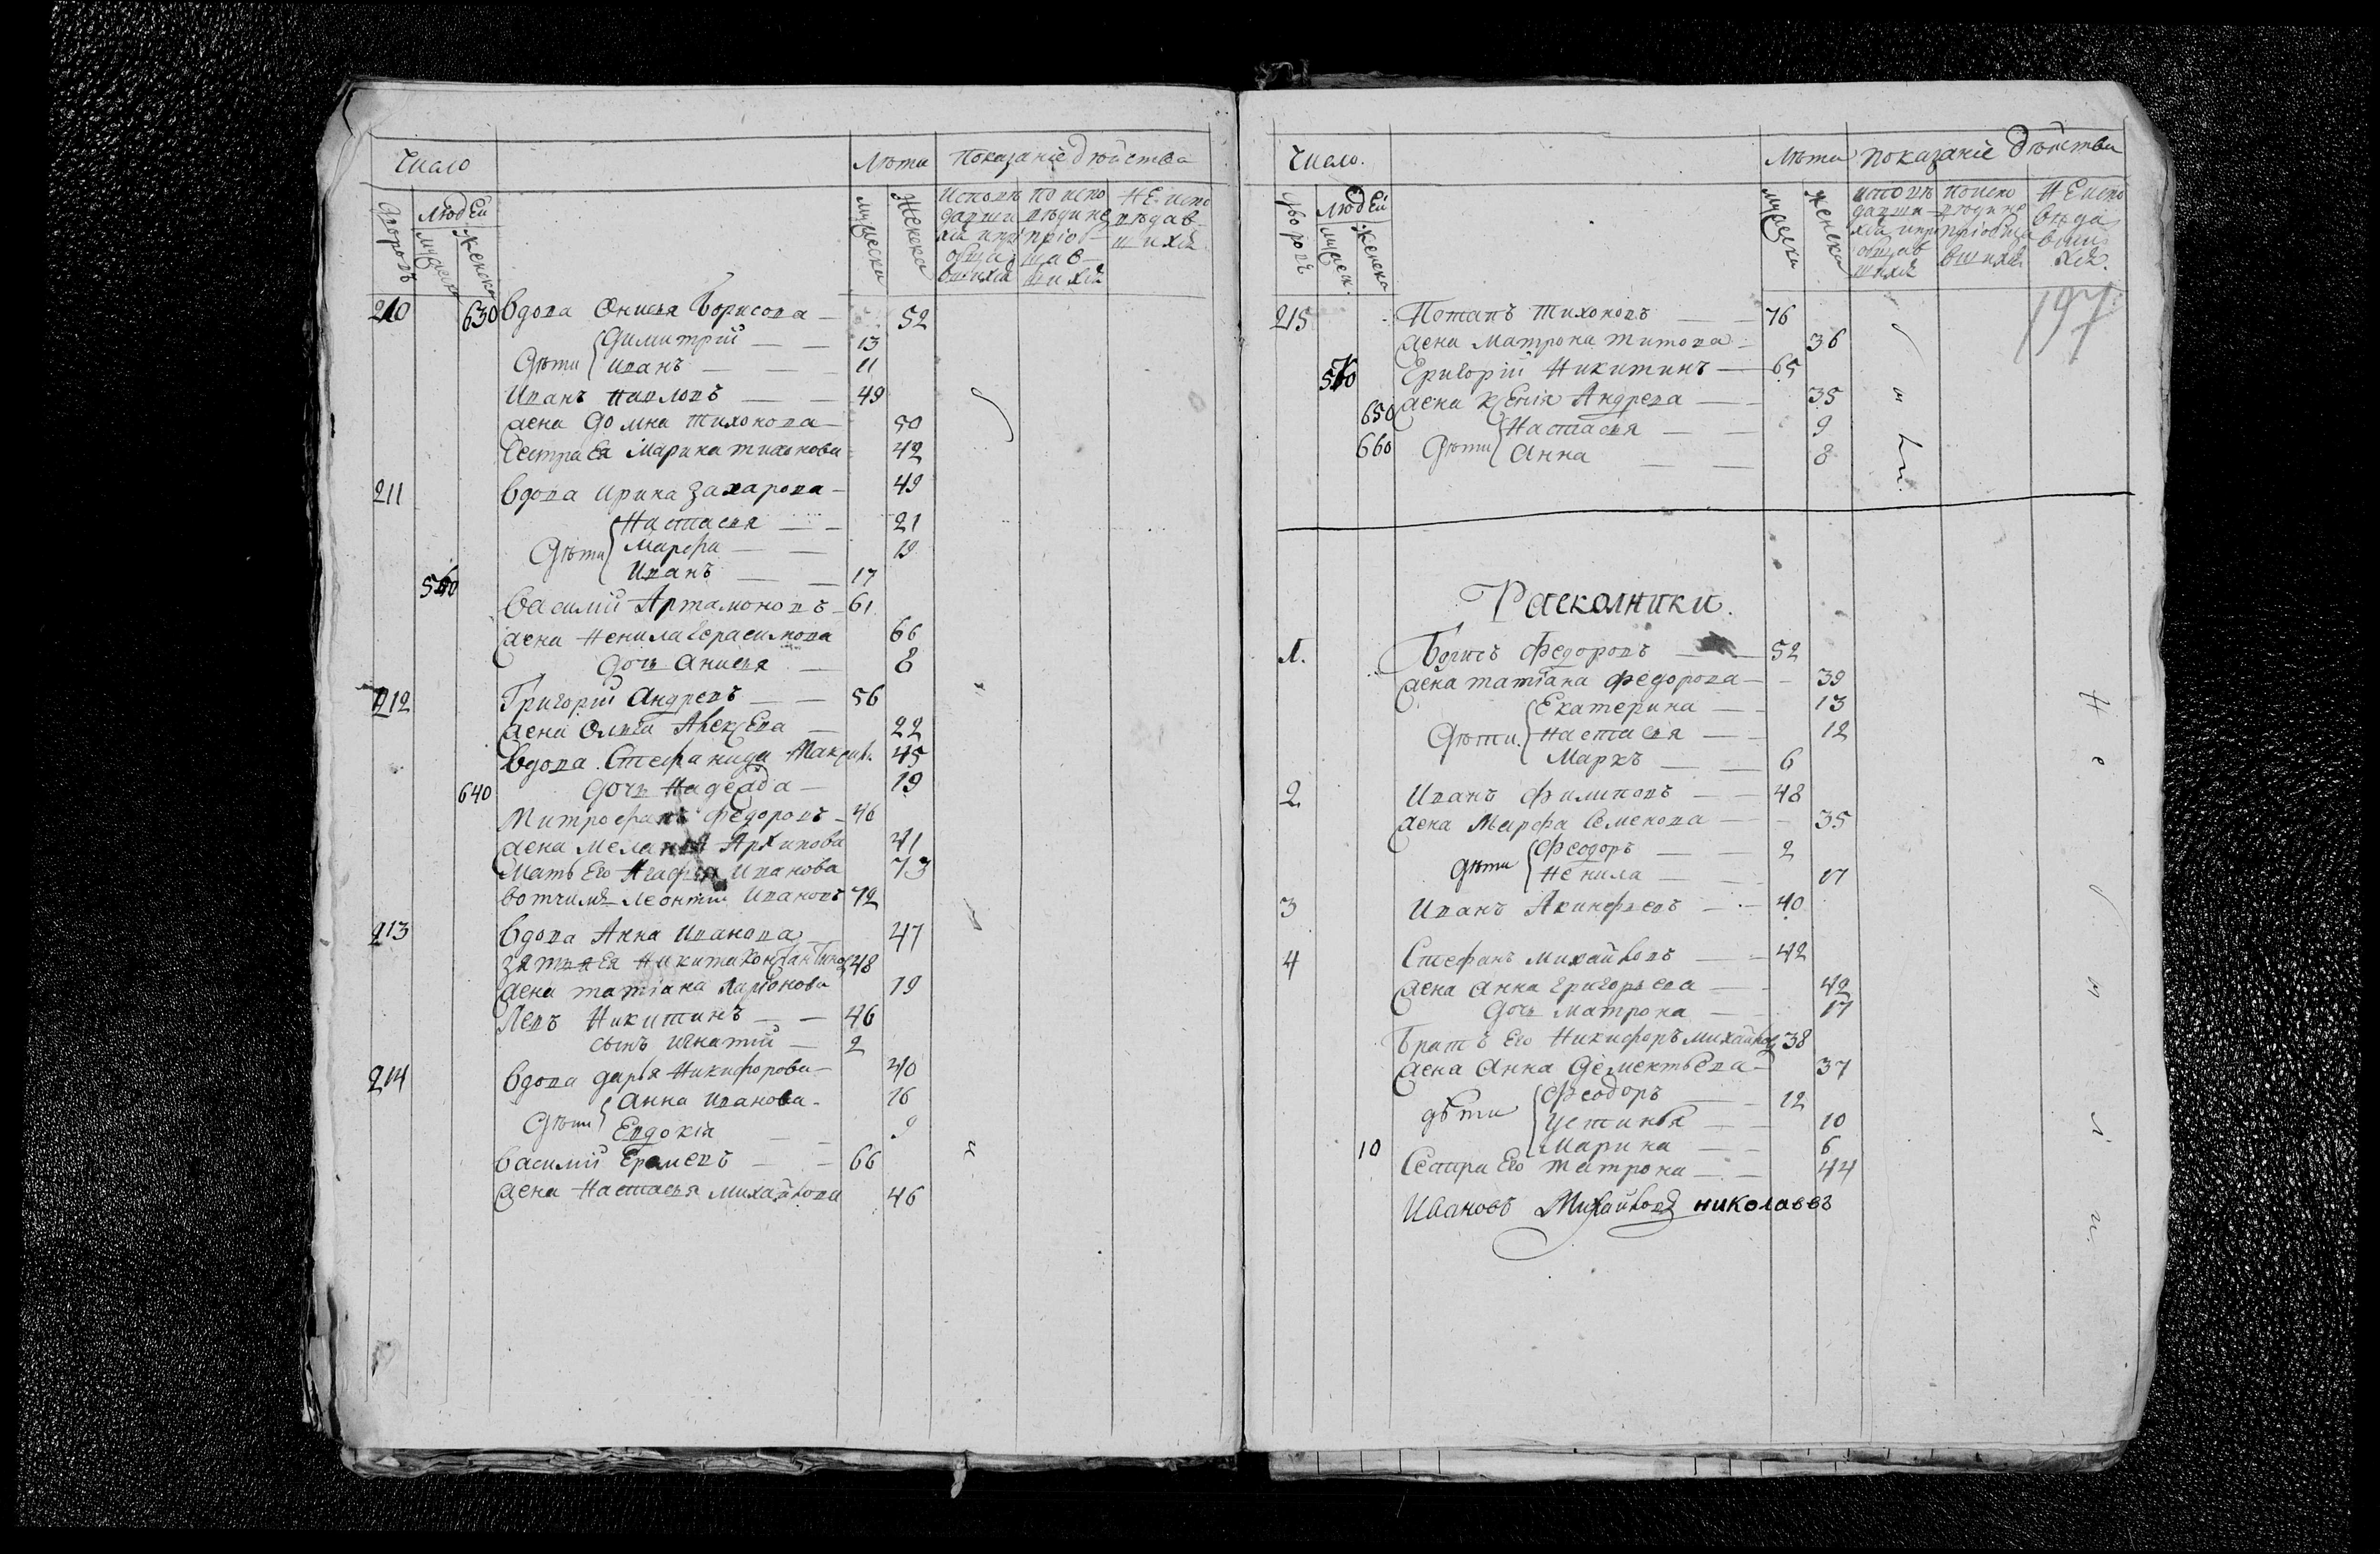 Число Лѣта Показаніе дѣйства
Дворовъ Людей Мужеска Женска Мужеска Женска Исповѣдавшихся и приобщавшихся По исповѣди не приобщавшихся Не исповѣдавшихся
210 630 Вдова Онисья Борисова 52
Дѣти Димитрій 13
Иванъ 11
Иванъ Павловъ 49
жена Домна Тихонова 50
Сестра Ея Марина Тихонова 42
211 Вдова Ирина Захарова 49
Настасья 21
Дѣти Марфа 19
Иванъ 17
560
Василій Артамоновъ 61
жена Ненила Герасимова 66
Дочь Анисья 8
212 Григорій Андревъ 56
жена Ольга Алексева 22
Вдова Стефанида Максим. 45
640 Дочь Надежда 19
Митрофанъ Федоровъ 46
жена Меланья Архипова 41
Мать Его Агафья Иванова 73
вотчимъ Леонтій Ивановъ 72
213 Вдова Анна Иванова 47
зять Ея Никита Константинов 48
жена Татіана Ларіонова 19
Левъ Никитинъ 46
сынъ Игнатій 2
214 Вдова Дарья Никифорова 40
Дѣти Анна Иванова 16
Евдокія 9
Василій Еремевъ 66
жена Настасья Михайлова 46
Число. Лѣта Показаніе дѣйства
Дворовъ Людей Мужеск. Женска Мужеска Женска Исповѣдавшихся и приобщавшихся По исповѣди не приобщавшихся Не исповѣдавшихся.
197
215 Потапъ Тихоновъ 76
жена Матрона Титова 36
Григорій Никитинъ 65
650 жена Ксенія Андрева 35
Настасья 9
660 Дѣти Анна 8
Расколники.
1. Борисъ Федоровъ 52
жена Татіана Федорова 39
Екатерина 13
Дѣти. Настасья 12
Маркъ 6
2 Иванъ Филиповъ 48
жена Марфа Семенова 35
Дѣти Феодоръ 2
Ненила 17
3 Иванъ Акинфьевъ 40
4 Стефанъ Михайловъ 42
жена Анна Григорьева 42
Дочь Матрона 17
Братъ Его Никифоръ Михайлов 38
жена Анна Дементьева 37
дѣти Феодоръ 12
Устинья 10
10 Марина 6
Сестра Его Матрона 44
Ивановъ Михайловъ николаевъ